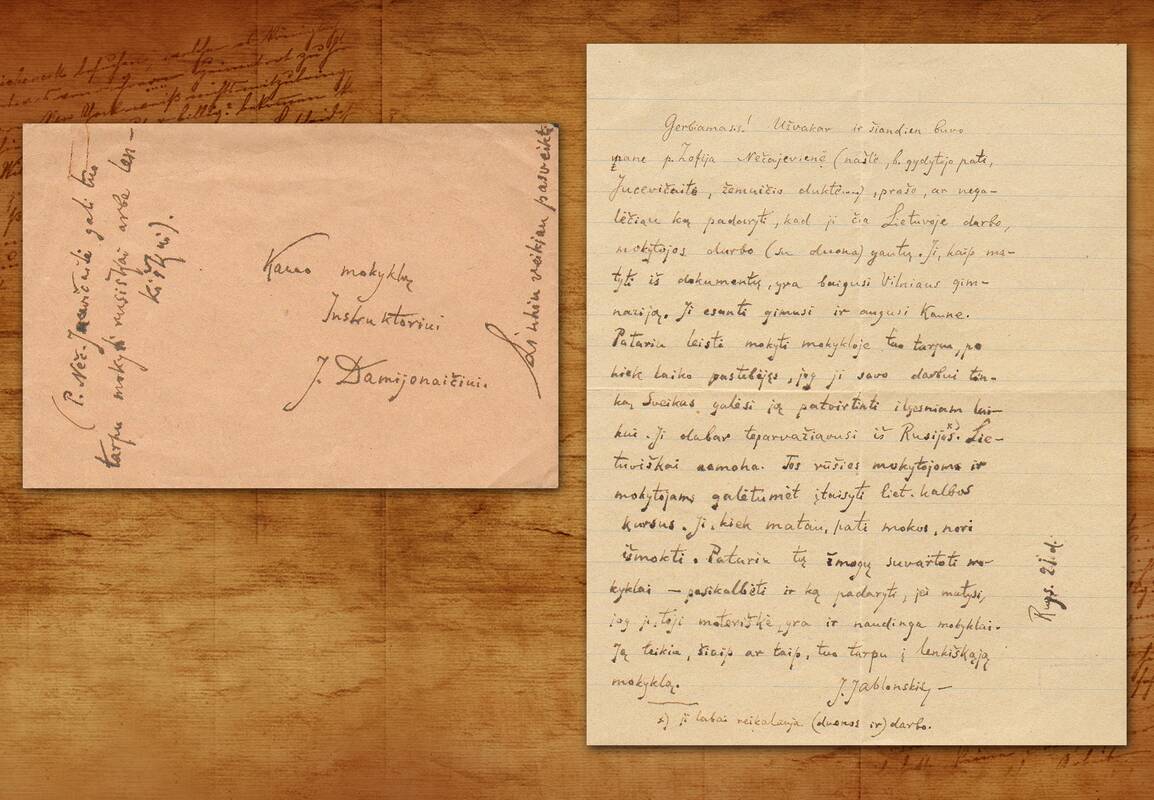 (P. Neč. Jucevičaitė gali tuo
tarpu mokyti rusiškai arba len-
kiškai).
Kauno mokyklų
Instruktoriui
J. Damijonaičiui.
veikiau pasveikti
Gerbiamasis! Užvakar ir šiandien buvo
pane p. Zofija Nečajevienė (našlė, b. gydytojo pati,
Jucevičaitė, žemaičio duktė...), prašo, ar nega-
lėčiau ką padaryti, kad ji čia Lietuvoje darbo,
mokytojos durbo (su duona) gautų. Ji, kaip ma-
tyti iš dokumentų, yra baigusi Vilniaus gim-
naziją. Ji esanti gimusi ir augusi Kaune.
Patariu leisti mokyti mokykloje tuo tarpu, po
kiek laiko pastebėjęs, jog ji savo darbui tin-
ka, Sveikas galėsi ją patvirtinti ilgesniam lai-
kui. Ji dabar teparvažiavusi iš Rusijos x). Lie-
tuviškai nemoka. Tos rūšies mokytojoms ir
mokytojams galėtumėt įtaisyti liet. kalbos
kursus. Ji, kiek matau, pati mokos, nori
išmokti. Patariu tą žmogų suvartoti mo-
kyklai — pasikalbėti ir ką padaryti, jei matysi,
jog ji, toji moteriškė, yra ir naudinga mokyklai.
Ją teikia, šiaip ar taip, tuo tarpu į lenkiškąją
mokyklą.
J. Jablonskis —
x) ji labai reikalauja (duonos ir) darbo.
Rugs. 21 d.